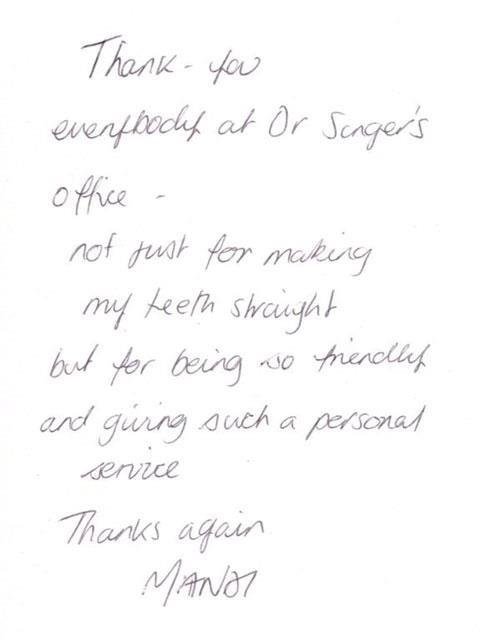 Thank-you
everybody at Dr Singer's
office -
not just for making
my teeth straight
but for being so friendly
and giving such a personal
service
Thanks again
MANDI